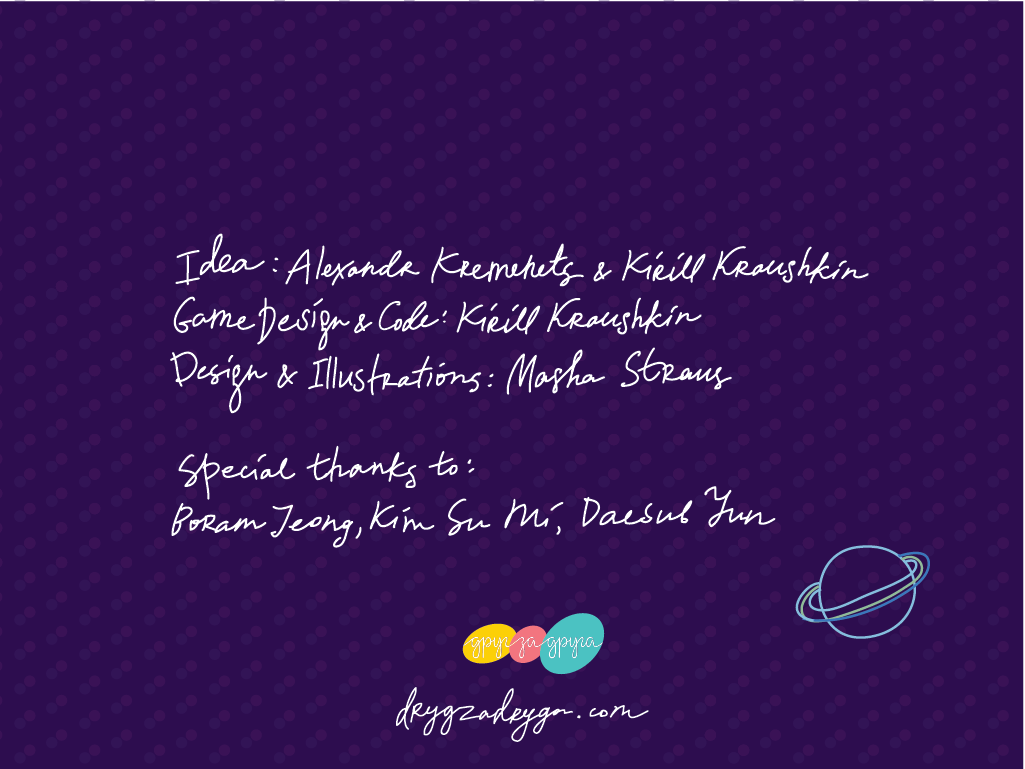 Idea: Alexandr Kremenets & Kirill Kraushkin
Game Design & Code: Kirill Kraushkin
Design & Illustrations: Masha Straus
Special thanks to:
Boram Jeong, Kim Su Mi, Daesub Yun
друг за друга
drygzadryga.com